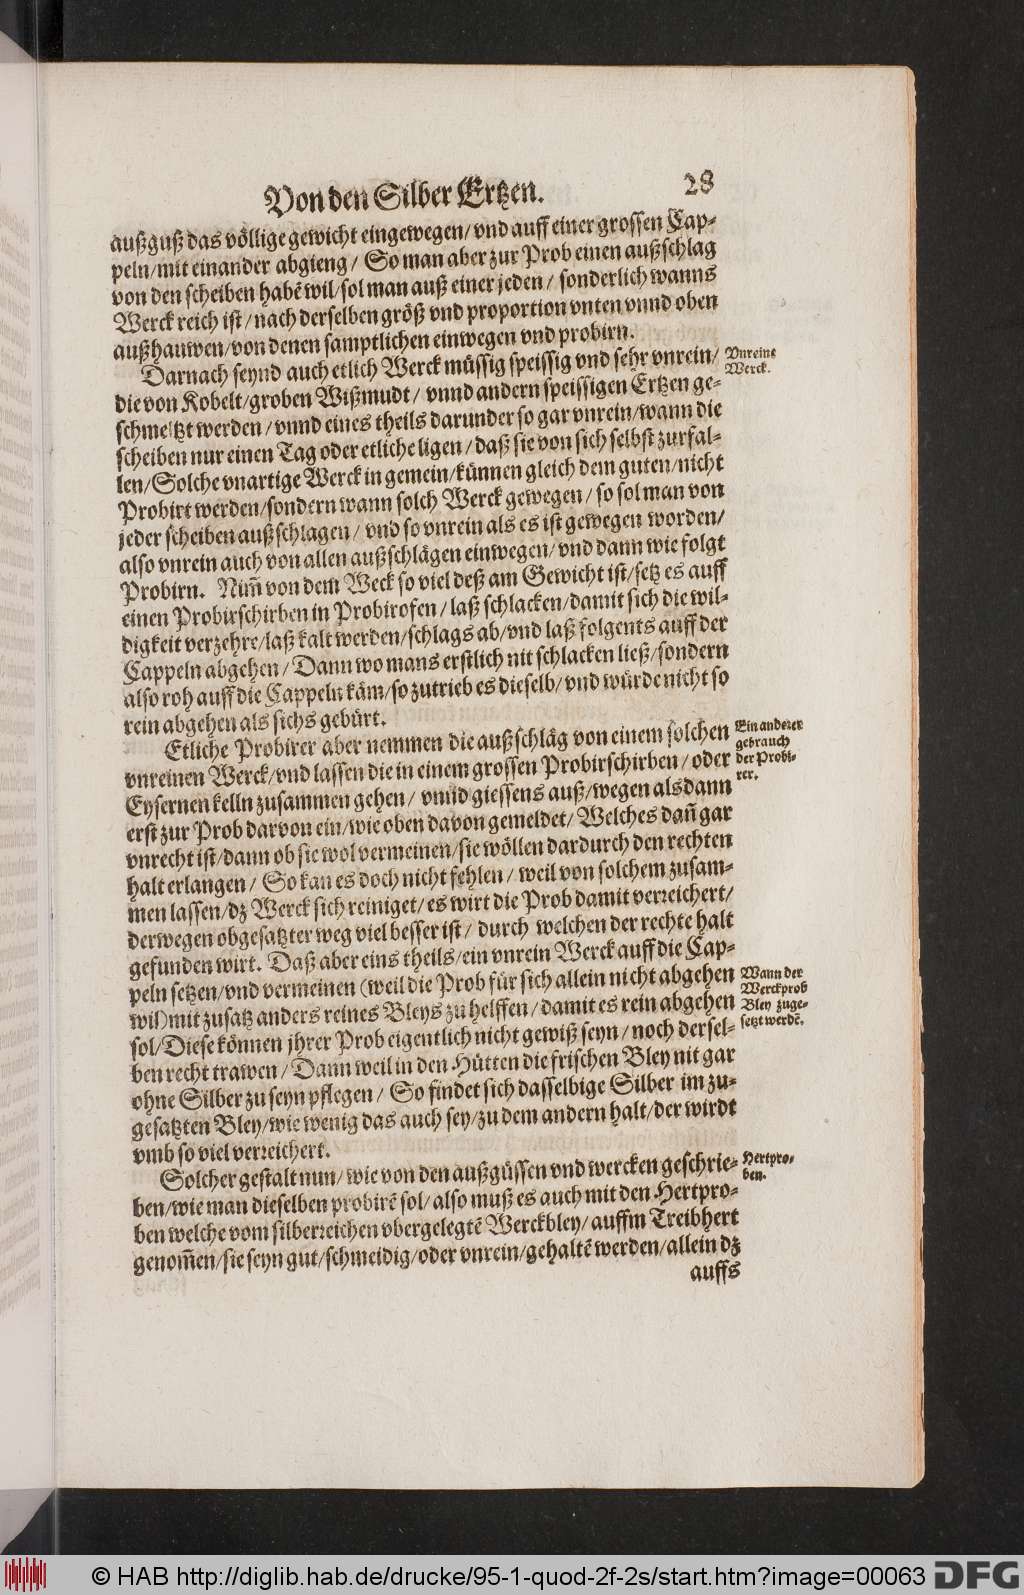 Von den Silber Ertzen. 28
außguß das völlige gewicht eingewegen/ vnd auff einer grossen Cap-
peln/ mit einander abgieng/ So man aber zur Prob einen außschlag
von den scheiben habẽ wil/ sol man auß einer jeden/ sonderlich wanns
Werck reich ist/ nach derselben größ vnd proportion vnten vnnd oben
außhauwen/ von denen samptlichen einwegen vnd probirn.
Darnach seynd auch etlich Werck müssig speissig vnd sehr vnrein/
Vnreine
Werck.
die von Kobelt/ groben Wißmudt/ vnnd andern speissigen Ertzen ge-
schmeltzt werden/ vnnd eines theils darunder so gar vnrein/ wann die
scheiben nur einen Tag oder etliche ligen/ daß sie von sich selbst zurfal-
len/ Solche vnartige Werck in gemein/ künnen gleich dem guten/ nicht
Probirt werden/ sondern wann solch Werck gewegen/ so sol man von
jeder scheiben außschlagen/ vnd so vnrein als es ist gewegen worden/
also vnrein auch von allen außschlägen einwegen/ vnd dann wie folgt
Probirn. Nim̃ von dem Weck so viel deß am Gewicht ist/ setz es auff
einen Probirschirben in Probirofen/ laß schlacken/ damit sich die wil-
digkeit verzehre/ laß kalt werden/ schlags ab/ vnd laß folgents auff der
Cappeln abgehen/ Dann wo mans erstlich nit schlacken ließ/ sondern
also roh auff die Cappeln käm/ so zutrieb es dieselb/ vnd würde nicht so
rein abgehen als sichs gebürt.
Etliche Probirer aber nemmen die außschläg von einem solchen
Ein anderer
gebrauch
der Probi-
rer.
vnreinen Werck/ vnd lassen die in einem grossen Probirschirben/ oder
Eysernen kelln zusammen gehen/ vnnd giessens auß/ wegen alsdann
erst zur Prob darvon ein/ wie oben davon gemeldet/ Welches dañ gar
vnrecht ist/ dann ob sie wol vermeinen/ sie wöllen dardurch den rechten
halt erlangen/ So kan es doch nicht fehlen/ weil von solchem zusam-
men lassen/ dz Werck sich reiniget/ es wirt die Prob damit verreichert/
derwegen obgesatzter weg viel besser ist/ durch welchen der rechte halt
gefunden wirt. Daß aber eins theils/ ein vnrein Werck auff die Cap-
peln setzen/ vnd vermeinen (weil die Prob für sich allein nicht abgehen
Wann der
Werckprob
Bley zuge-
setzt werdẽ.
wil) mit zusatz anders reines Bleys zu helffen/ damit es rein abgehen
sol/ Diese können jhrer Prob eigentlich nicht gewiß seyn/ noch dersel-
ben recht trawen/ Dann weil in den Hütten die frischen Bley nit gar
ohne Silber zu seyn pflegen/ So findet sich dasselbige Silber im zu-
gesatzten Bley/ wie wenig das auch sey/ zu dem andern halt/ der wirdt
vmb so viel verreichert.
Solcher gestalt nun/ wie von den außgüssen vnd wercken geschrie-
Hertpro-
ben.
ben/ wie man dieselben probirẽ sol/ also muß es auch mit den Hertpro-
ben welche vom silberreichen vbergelegtẽ Werckbley/ auffm Treibhert
genom̃en/ sie seyn gut/ schmeidig/ oder vnrein/ gehaltẽ werden/ allein dz
auffs
© HAB http://diglib.hab.de/drucke/95-1-quod-2f-2s/start.htm?image=00063
DFG